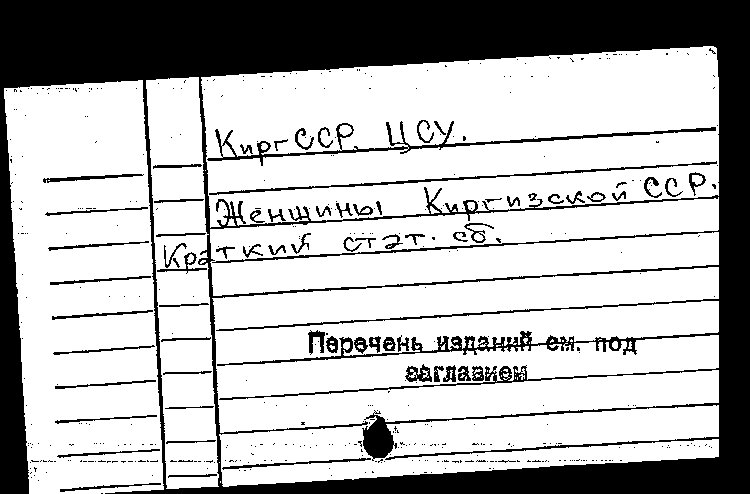 КиргССР. ЦСУ.
Женщины Киргизской ССР.
Краткий стат. сб.
Перечень изданий см. под
заглавием